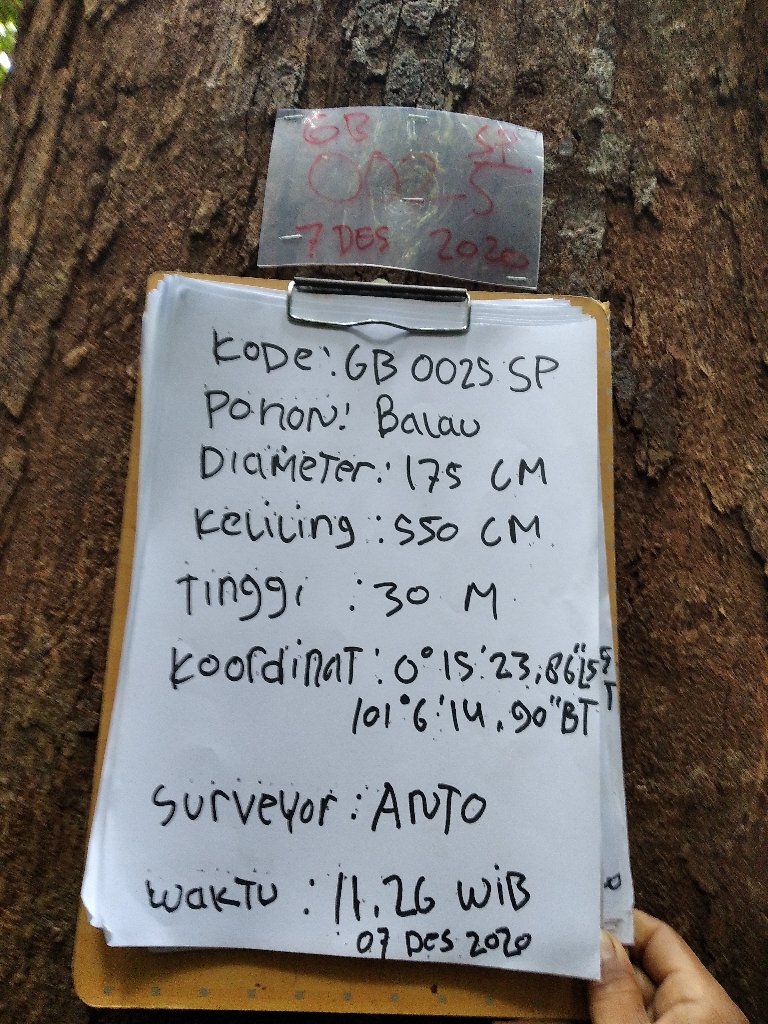 GB SP
0025
7 DES 2020
KODe: GB 0025 SP
POHON: Balau
DIAMETER: 175 CM
Keliling : 550 CM
Tinggi : 30 M
Koordinat : 0°15'23,86"LS
101°6'14.90"BT
Surveyor : ANTO
WAKTU : 11.26 WiB
07 DES 2020